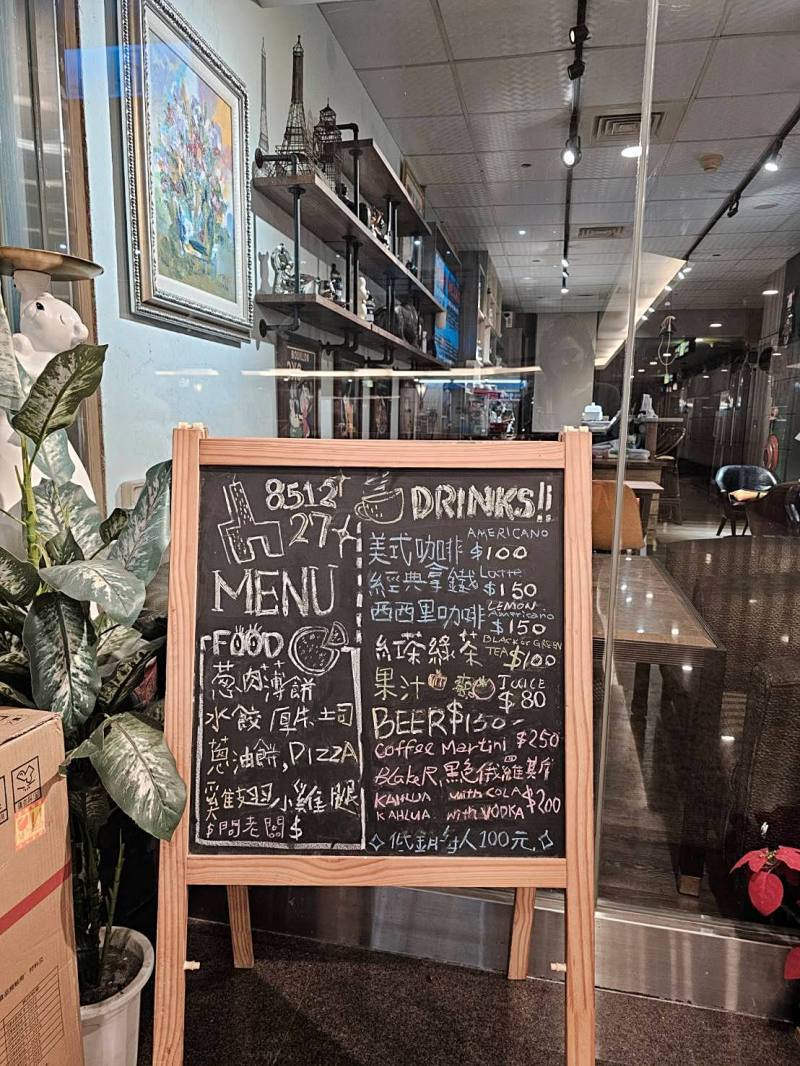 8512
27
MENU
FOOD
蔥肉薄餅
水餃 厚片土司
蔥油餅,PIZZA
雞翅小雞腿
$問老闆$
DRINKS!!
美式咖啡 AMERICANO $100
經典拿鐵 Latte $150
西西里咖啡 LEMON Americano $150
紅茶綠茶 BLACK or GREEN TEA $100
果汁 JUICE $80
BEER $150-
Coffee Martini $250
黑色俄羅斯
KAHLUA with COLA $200
KAHLUA with VODKA
低銷每人100元
BOUILLON